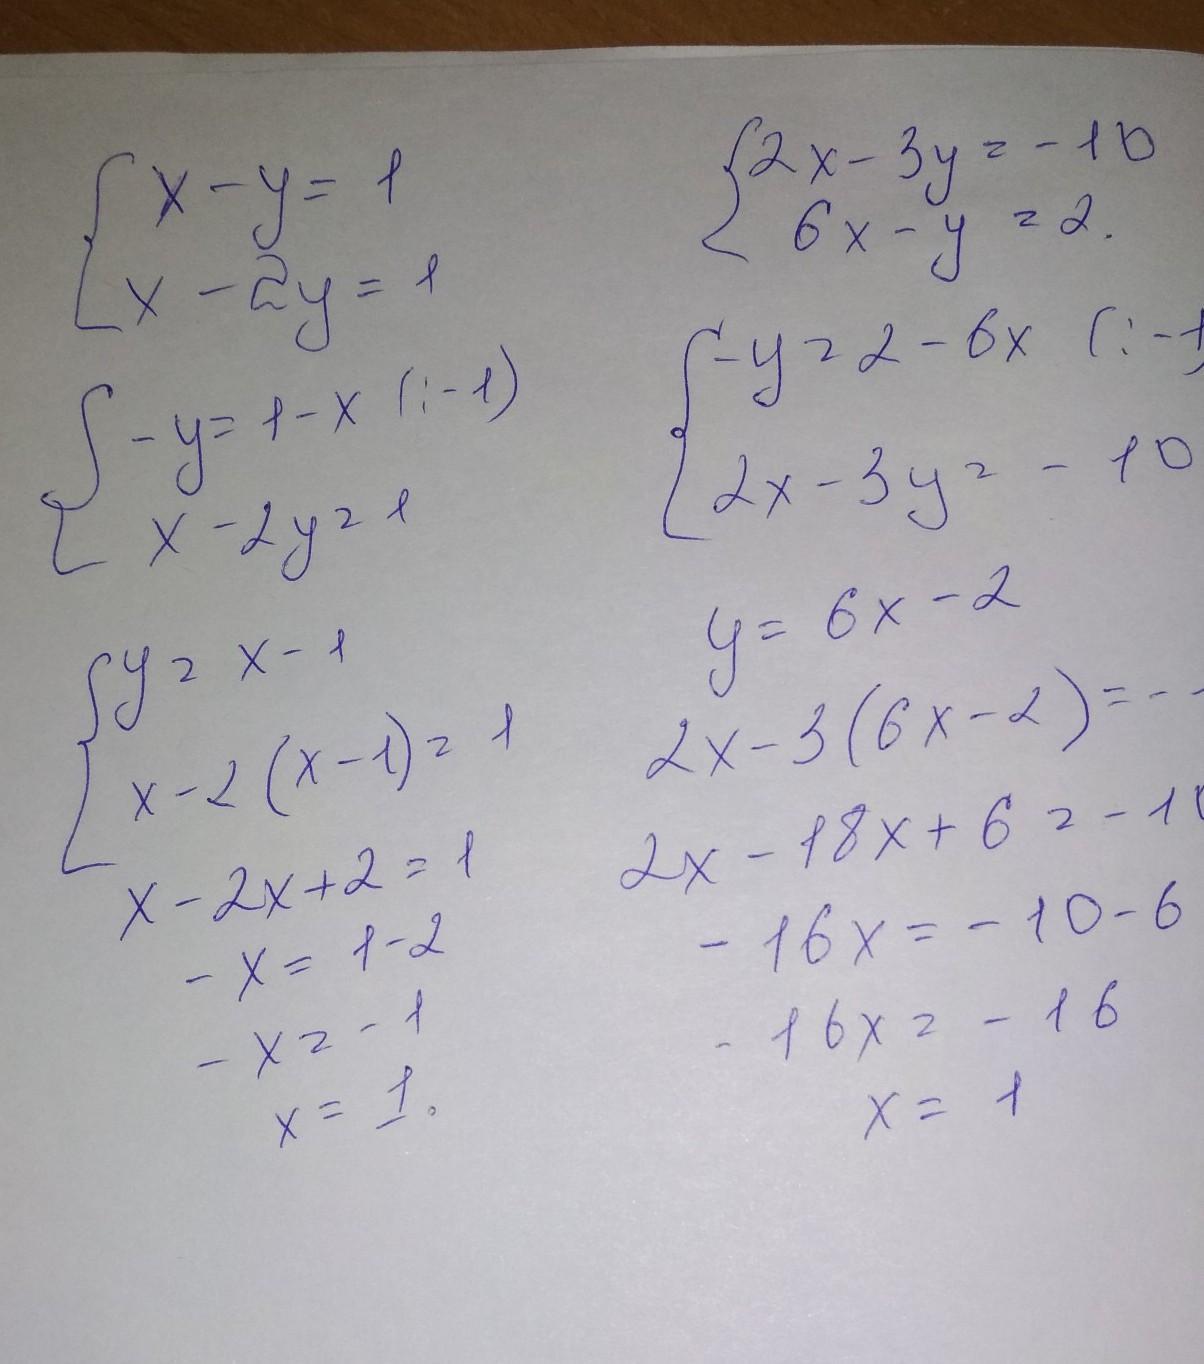 x - y = 1
x - 2y = 1
-y = 1 - x (: -1)
x - 2y = 1
y = x - 1
x - 2(x - 1) = 1
x - 2x + 2 = 1
-x = 1 - 2
-x = -1
x = 1.
2x - 3y = -10
6x - y = 2.
-y = 2 - 6x (: -1)
2x - 3y = - 10
y = 6x - 2
2x - 3(6x - 2) = -
2x - 18x + 6 = -10
- 16x = - 10 - 6
- 16x = - 16
x = 1